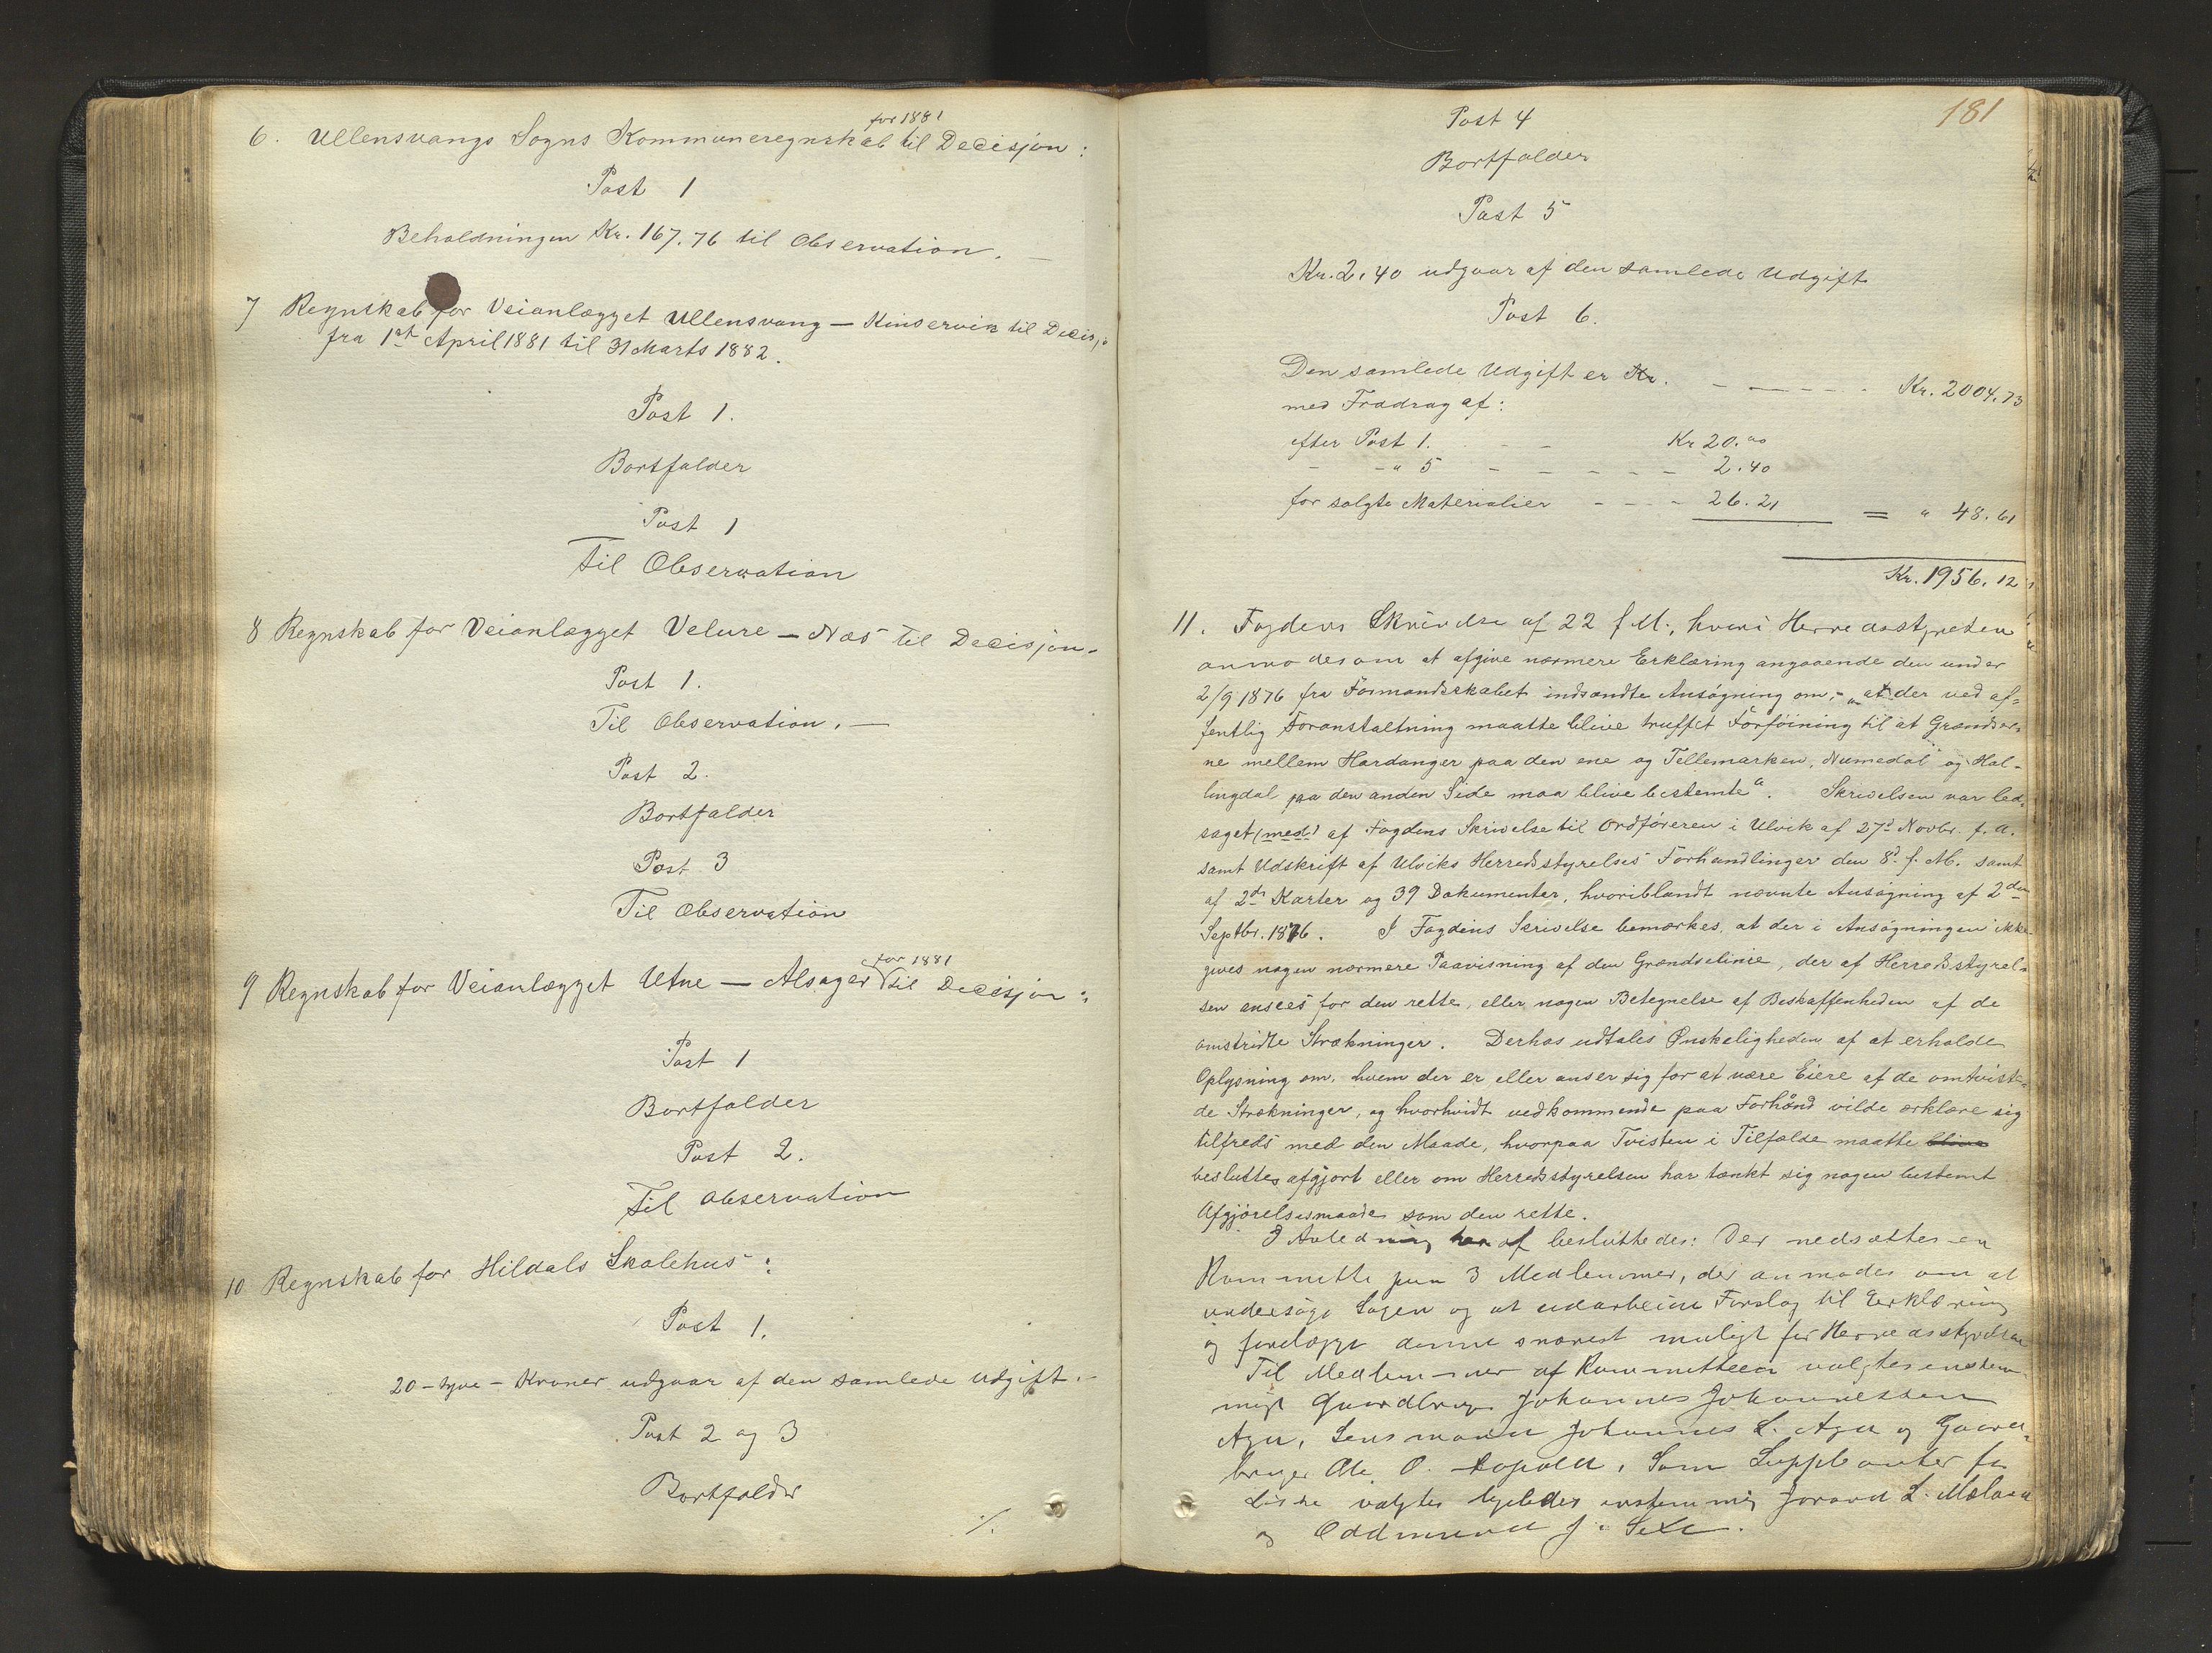 6. Ullensvangs Sogns Kommuneregnskab for 1881 til Decisjon:
Post 1
Beholdningen Kr. 167.76 til Observation. —
7 Regnskab for Veianlægget Ullensvang — Kinservik til Decisj:
fra 1ste April 1881 til 31 Marts 1882.
Post 1.
Bortfalder
Post 1
Til Observation
8 Regnskab for Veianlægget Velure — Næs til Decisjon.
Post 1.
Til Observation. —
Post 2.
Bortfalder
Post 3
Til Observation
9 Regnskab for Veianlægget Utne — Alsager for 1881 til Decisjon:
Post 1
Bortfalder
Post 2.
Til Observation
10 Regnskab for Hildals Skolehus:
Post 1.
20 – tyve – Kroner udgaar af den samlede Udgift. –
Post 2 og 3
Bortfalder
./.
181
Post 4
Bortfalder
Post 5
Kr. 2.40 udgaar af den samlede Udgift
Post 6.
Den samlede Udgift er Kr. - — - - - Kr. 2004.73
med Fradrag af:
efter Post 1. - - Kr 20.00
- -" 5 - - - - - - 2.40
for solgte Materialier - - - - 26.21 = " 48.61
Kr. 1956.12
11. Fogdens Skrivelse af 22 f. M., hvori Herredsstyrelsen
anmodes om at afgive nærmere Erklæring angaaende den under
2/9 1876 fra Formandskabet indsendte Ansøgning om, – „at der ved of-
fentlig Foranstaltning maatte blive truffet Forføining til at Grændser-
ne mellem Hardanger paa den ene og Tellemarken, Numedal og Hal-
lingdal paa den anden Side maa blive bestemte". Skrivelsen var led-
saget (med) af Fogdens Skrivelse til Ordføreren i Ulvik af 27d Novbr. f. A.
samt Udskrift af Ulviks Herredsstyrelses Forhandlinger den 8d f. M. samt
af 2de Karter og 39 Dokumenter, hvoriblandt nævnte Ansøgning af 2den
Septbr. 1876. I Fogdens Skrivelse bemærkes, at der i Ansøgningen ikke
gives nogen nærmere Paavisning af den Grændselinie, der af Herredsstyrel-
sen ansees for den rette, eller nogen Betegnelse af Beskaffenheden af de
omstridte Strækninger. Derhos udtales Ønskeligheden af at erholde
Oplysning om, hvem der er eller anser sig for at være Eiere af de omtviste-
de Strækninger, og hvorhvidt vedkommende paa Forhånd vilde erklære sig
tilfreds med den Maade, hvorpaa Tvisten i Tilfælde maatte blive
besluttes afgjort eller om Herredsstyrelsen har tænkt sig nogen bestemt
Afgjørelsesmaade som den rette.
I Anledning heraf besluttedes: Der nedsættes en
Kommitte paa 3 Medlemmer, der anmodes om at
undersøge Sagen og at udarbeide Forslag til Erklæring
og forelægge denne snarest muligt for Herredsstyrelsen
Til Medlemmer af Kommitteen valgtes enstem-
migt Gaardbruger Johannes Johannessen
Aga, Lensmand Johannes L. Aga og Gaard-
bruger Ole O. Lofald. Som Supplianter for
disse valgtes ligeledes enstemmig L.
og Oddmund J. Sexe.